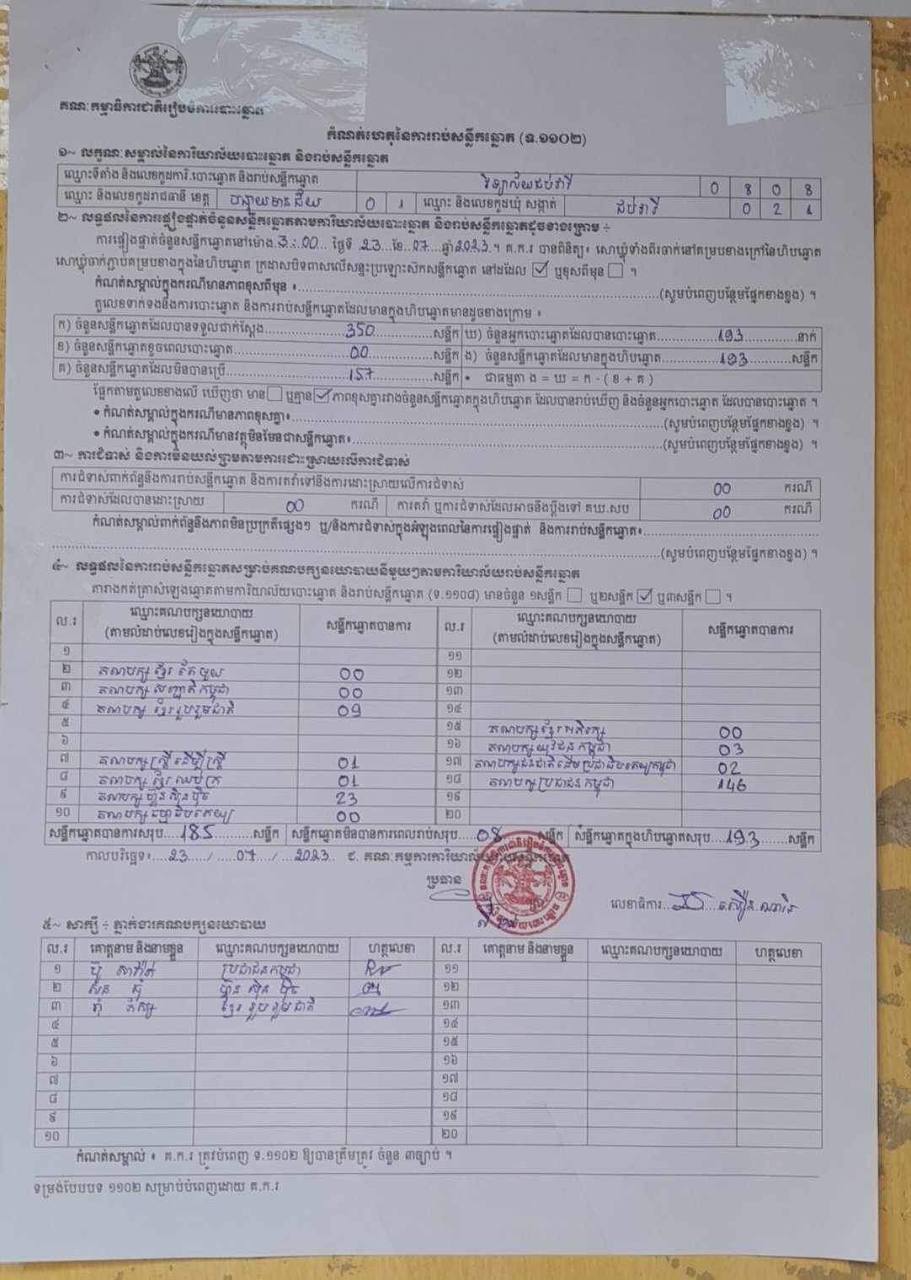 គណៈកម្មាធិការជាតិរៀបចំការបោះឆ្នោត
កំណត់ហេតុនៃការរាប់សន្លឹកឆ្នោត (ទ.១១០២)
១~ លក្ខណៈសម្គាល់នៃការិយាល័យបោះឆ្នោត និងរាប់សន្លឹកឆ្នោត
ឈ្មោះទីតាំង និងលេខកូដការិ.បោះឆ្នោត និងរាប់សន្លឹកឆ្នោត វិទ្យាល័យជប់វារី 0 8 0 8
ឈ្មោះ និងលេខកូដរាជធានី ខេត្ត បន្ទាយមានជ័យ 0 1 ឈ្មោះ និងលេខកូដឃុំ សង្កាត់ ជប់វារី 0 2 1
២~ លទ្ធផលនៃការផ្ទៀងផ្ទាត់ចំនួនសន្លឹកឆ្នោតតាមការិយាល័យបោះឆ្នោត និងរាប់សន្លឹកឆ្នោតដូចខាងក្រោម ÷
ការផ្ទៀងផ្ទាត់ចំនួនសន្លឹកឆ្នោតនៅម៉ោង 3:00 ថ្ងៃទី 23 ខែ 07 ឆ្នាំ 2023 ។ គ.ក.រ បានពិនិត្យ៖ សោឃ្លុំទាំងពីរចាក់នៅគម្របខាងក្រៅនៃហិបឆ្នោត
សោឃ្លុំចាក់ភ្ជាប់គម្របខាងក្នុងនៃហិបឆ្នោត ក្រដាសបិទពាសលើសន្ទះប្រឡោះស៊កសន្លឹកឆ្នោត នៅដដែល ☑ ឬខុសពីមុន ☐ ។
កំណត់សម្គាល់ក្នុងករណីមានភាពខុសពីមុន ៖ (សូមបំពេញបន្ថែមផ្នែកខាងខ្នង) ។
តួលេខទាក់ទងនឹងការបោះឆ្នោត និងការរាប់សន្លឹកឆ្នោតដែលមានក្នុងហិបឆ្នោតមានដូចខាងក្រោម ៖
ក) ចំនួនសន្លឹកឆ្នោតដែលបានទទួលជាក់ស្តែង 350 សន្លឹក ឃ) ចំនួនអ្នកបោះឆ្នោតដែលបានបោះឆ្នោត 193 នាក់
ខ) ចំនួនសន្លឹកឆ្នោតខូចពេលបោះឆ្នោត 00 សន្លឹក ង) ចំនួនសន្លឹកឆ្នោតដែលមានក្នុងហិបឆ្នោត 193 សន្លឹក
គ) ចំនួនសន្លឹកឆ្នោតដែលមិនបានប្រើ 157 សន្លឹក • ជាធម្មតា ង = ឃ = ក - ( ខ + គ )
ផ្អែកតាមតួលេខខាងលើ ឃើញថា មាន ☐ ឬគ្មាន ☑ ភាពខុសគ្នារវាងចំនួនសន្លឹកឆ្នោតក្នុងហិបឆ្នោត ដែលបានរាប់ឃើញ និងចំនួនអ្នកបោះឆ្នោត ដែលបានបោះឆ្នោត ។
• កំណត់សម្គាល់ក្នុងករណីមានភាពខុសគ្នា៖ (សូមបំពេញបន្ថែមផ្នែកខាងខ្នង) ។
• កំណត់សម្គាល់ក្នុងករណីមានវត្ថុមិនមែនជាសន្លឹកឆ្នោត៖ (សូមបំពេញបន្ថែមផ្នែកខាងខ្នង) ។
៣~ ការជំទាស់ និងការមិនយល់ព្រមតាមការដោះស្រាយលើការជំទាស់
ការជំទាស់ពាក់ព័ន្ធនឹងការរាប់សន្លឹកឆ្នោត និងការតវ៉ាទៅនឹងការដោះស្រាយលើការជំទាស់ 00 ករណី
ការជំទាស់ដែលបានដោះស្រាយ 00 ករណី ការតវ៉ា ឬការជំទាស់ដែលអាចនឹងប្តឹងទៅ គឃ.សប 00 ករណី
កំណត់សម្គាល់ពាក់ព័ន្ធនឹងភាពមិនប្រក្រតីផ្សេងៗ ឬ/និងការជំទាស់ក្នុងអំឡុងពេលនៃការផ្ទៀងផ្ទាត់ និងការរាប់សន្លឹកឆ្នោត៖
(សូមបំពេញបន្ថែមផ្នែកខាងខ្នង) ។
៤~ លទ្ធផលនៃការរាប់សន្លឹកឆ្នោតសម្រាប់គណបក្សនយោបាយនីមួយៗតាមការិយាល័យរាប់សន្លឹកឆ្នោត
តារាងកត់ត្រាសំឡេងឆ្នោតតាមការិយាល័យបោះឆ្នោត និងរាប់សន្លឹកឆ្នោត (ទ.១១០៨) មានចំនួន ១សន្លឹក ☐ ឬ២សន្លឹក ☑ ឬ៣សន្លឹក ☐ ។
ល.រ ឈ្មោះគណបក្សនយោបាយ (តាមលំដាប់លេខរៀងក្នុងសន្លឹកឆ្នោត) សន្លឹកឆ្នោតបានការ ល.រ ឈ្មោះគណបក្សនយោបាយ (តាមលំដាប់លេខរៀងក្នុងសន្លឹកឆ្នោត) សន្លឹកឆ្នោតបានការ
១ ១១
២ គណបក្ស ខ្មែរ តែមួយ 00 ១២
៣ គណបក្ស សញ្ជាតិកម្ពុជា 00 ១៣
៤ គណបក្ស ខ្មែររួបរួមជាតិ 09 ១៤
៥ ១៥ គណបក្សខ្មែរអភិរក្ស 00
៦ ១៦ គណបក្សយុវជនកម្ពុជា 03
៧ គណបក្សស្ត្រីដើម្បីស្ត្រី 01 ១៧ គណបក្សជនជាតិដើមប្រជាធិបតេយ្យកម្ពុជា 02
៨ គណបក្ស ខ្មែរឈប់ក្រ 01 ១៨ គណបក្សប្រជាជនកម្ពុជា 146
៩ គណបក្សហ៊្វុនស៊ិនប៉ិច 23 ១៩
១០ គណបក្ស ធម្មាធិបតេយ្យ 00 ២០
សន្លឹកឆ្នោតបានការសរុប 185 សន្លឹក សន្លឹកឆ្នោតមិនបានការពេលរាប់សរុប 08 សន្លឹក សន្លឹកឆ្នោតក្នុងហិបឆ្នោតសរុប 193 សន្លឹក
កាលបរិច្ឆេទ៖ 23 / 07 / 2023 ជ. គណៈកម្មការការិយាល័យរាប់សន្លឹកឆ្នោត
ប្រធាន
លេខាធិការ
៥~ សាក្សី ÷ ភ្នាក់ងារគណបក្សនយោបាយ
ល.រ គោត្តនាម និងនាមខ្លួន ឈ្មោះគណបក្សនយោបាយ ហត្ថលេខា ល.រ គោត្តនាម និងនាមខ្លួន ឈ្មោះគណបក្សនយោបាយ ហត្ថលេខា
១ ប្រជាជនកម្ពុជា ១១
២ ហ៊្វុន ស៊ិន ប៉ិច ១២
៣ ខ្មែរ រួប រួម ជាតិ ១៣
៤ ១៤
៥ ១៥
៦ ១៦
៧ ១៧
៨ ១៨
៩ ១៩
១០ ២០
កំណត់សម្គាល់ ៖ គ.ក.រ ត្រូវបំពេញ ទ.១១០២ ឱ្យបានត្រឹមត្រូវ ចំនួន ៣ច្បាប់ ។
ទម្រង់បែបបទ ១១០២ សម្រាប់បំពេញដោយ គ.ក.រ